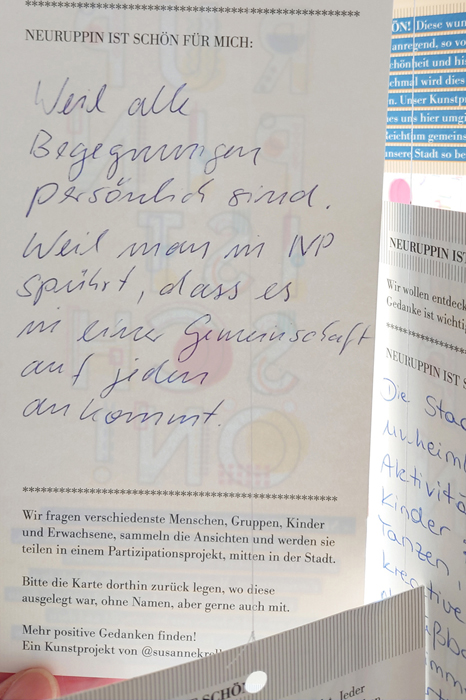 ****************************************************
NEURUPPIN IST SCHÖN FÜR MICH:
Weil alle
Begegnungen
persönlich sind.
Weil man in NP
spührt, dass es
in einer Gemeinschaft
auf jeden
ankommt.
****************************************************
Wir fragen verschiedenste Menschen, Gruppen, Kinder
und Erwachsene, sammeln die Ansichten und werden sie
teilen in einem Partizipationsprojekt, mitten in der Stadt.
Bitte die Karte dorthin zurück legen, wo diese
ausgelegt war, ohne Namen, aber gerne auch mit.
Mehr positive Gedanken finden!
Ein Kunstprojekt von
ÖN! Diese
anregend, so
und
wird dies
Unser
uns hier
gemeins
Stadt so
NEURUPPIN IS
Wir wollen
Gedanke ist
NEURUPPIN IST
Die
Kinder
Tanzen,
Jeder